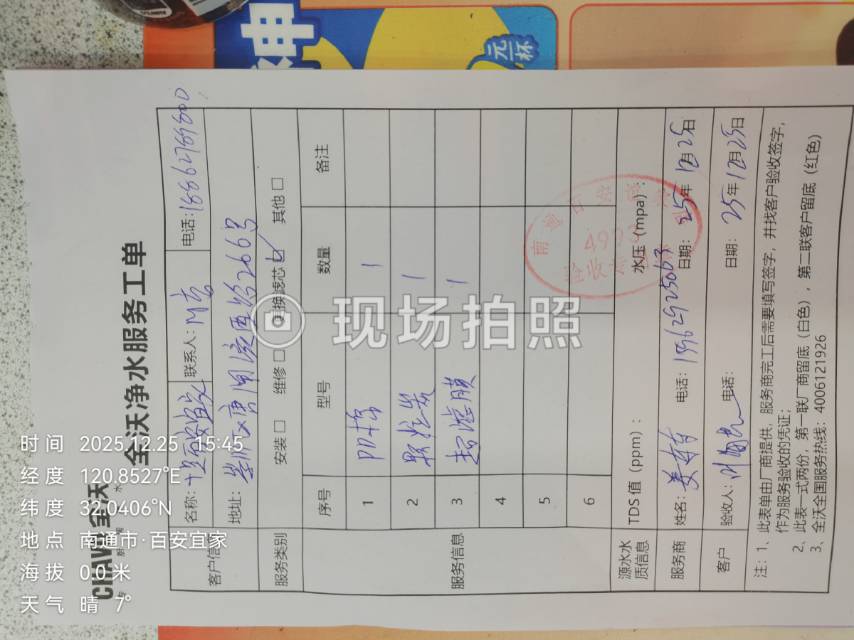 CHAWO 全沃
全沃净水服务工单
客户信息
名称:
联系人: M店
电话: 18862789800
地址: 崇川区 266号
服务类别
安装 □ 维修 □ 更换滤芯 ☑ 其他 □
服务信息
序号 型号 数量 备注
1 PP棉 1
2 颗粒炭 1
3 超滤膜 1
4
5
6
源水水质信息
TDS值（ppm）:
水压（mpa）:
服务商
姓名:
电话:
日期: 25年12月25日
客户
验收人:
电话:
日期: 25年12月25日
注: 1、此表单由厂商提供、服务商完工后需要填写签字，并找客户验收签字，
作为服务验收的凭证;
2、此表一式两份，第一联厂商留底（白色），第二联客户留底（红色）
3、全沃全国服务热线: 4006121926
神
元/杯
现场拍照
时间 2025.12.25 15:45
经度 120.8527°E
纬度 32.0406°N
地点 南通市·百安宜家
海拔 0.0米
天气 晴 7°